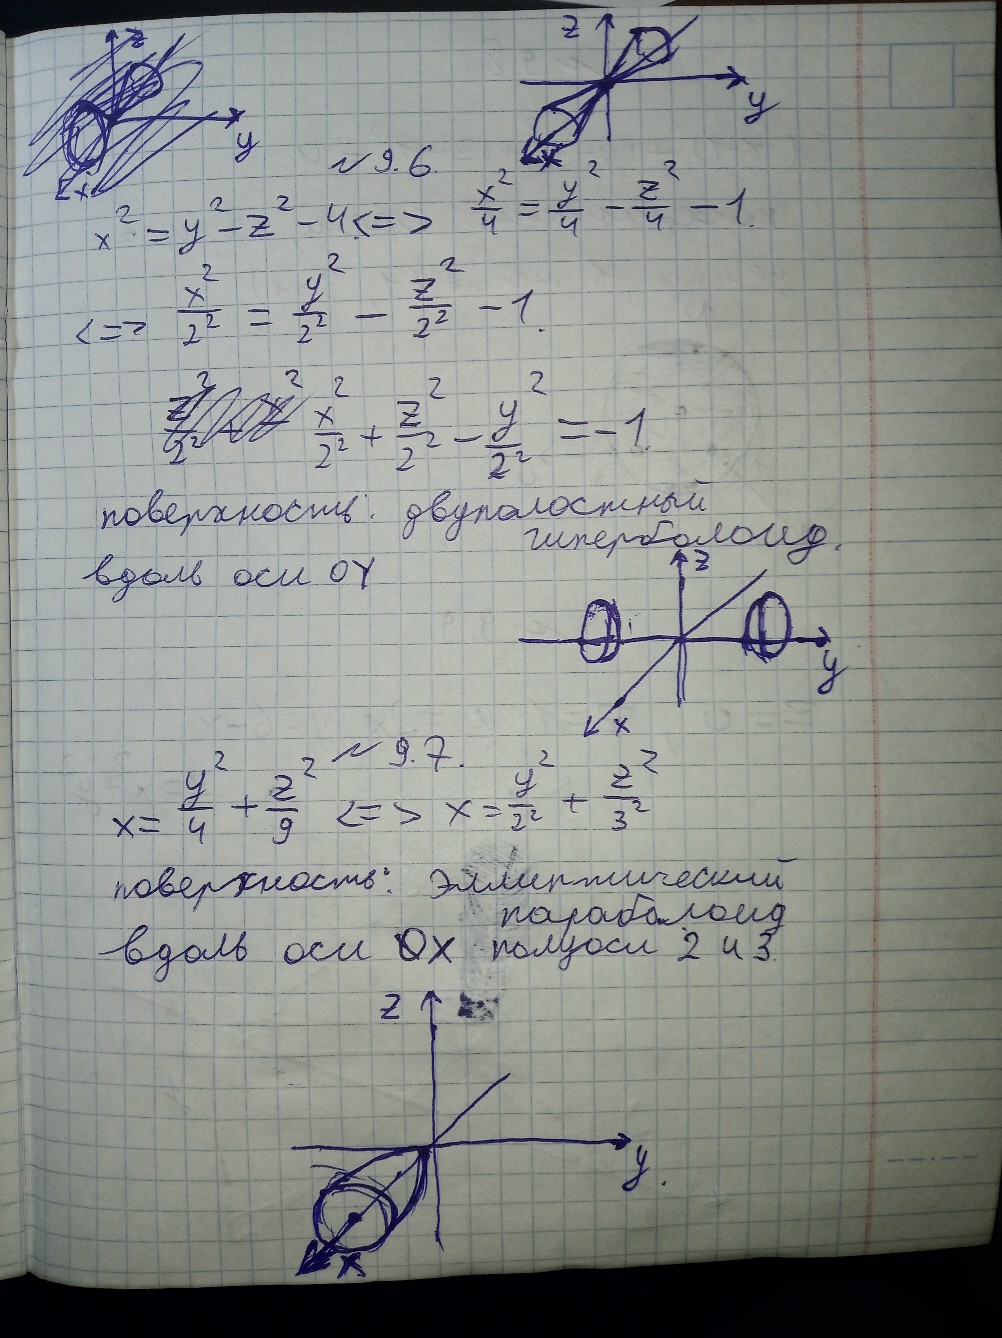 z z
y y
x x
№ 9.6.
x² = y² - z² - 4 <=> x²/4 = y²/4 - z²/4 - 1.
<=> x²/2² = y²/2² - z²/2² - 1.
x²/2² + z²/2² - y²/2² = -1.
поверхность: двуполостный
гиперболоид.
вдоль оси OY
z
y
x
№ 9.7.
x = y²/4 + z²/9 <=> x = y²/2² + z²/3²
поверхность: эллиптический
параболоид
вдоль оси OX полуоси 2 и 3.
z
y.
x